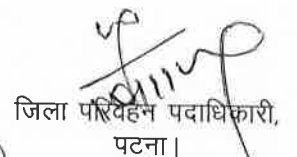 जिला परिवहन पदाधिकारी,
पटना।